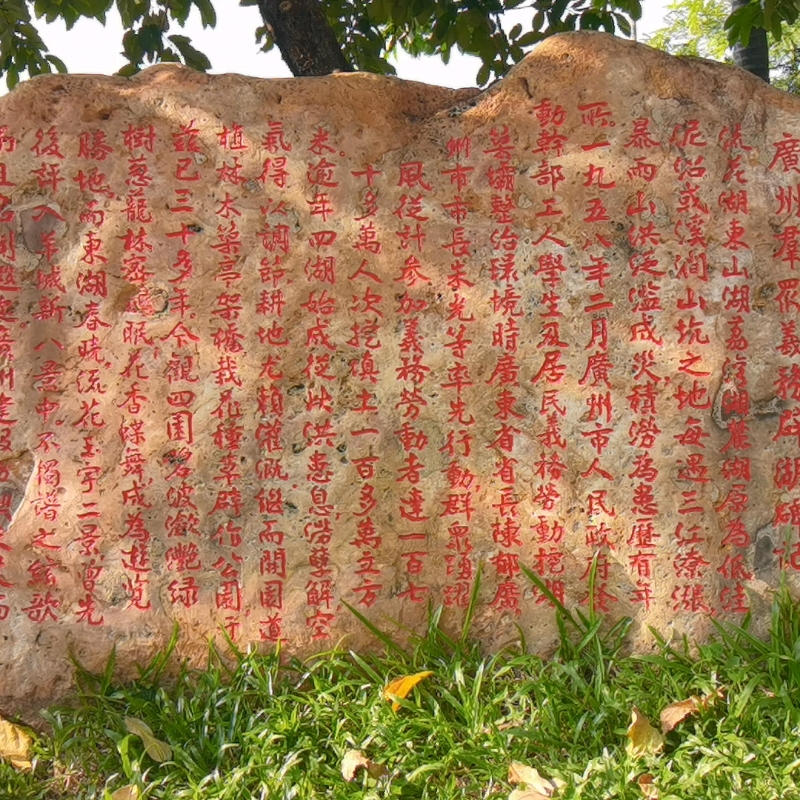 廣州羣眾義務闢湖碑記
流花湖東山湖荔灣湖麓湖原為低洼
泥沼或溪澗山坑之地每遇三江潦漲
暴雨山洪泛濫成災積澇為患歷有年
所一九五八年二月廣州市人民政府發
動幹部工人學生及居民義務勞動挖湖
築壩整治環境時廣東省省長陳郁廣
州市市長朱光等率先行動群眾踴躍
風從計參加義務勞動者達一百七
十多萬人次挖填土一百多萬立方
米逾年四湖始成從此洪患息澇孽解空
氣得以調節耕地尤賴灌溉繼而開園道
植林木築亭架橋栽花種草辟作公園于
茲已三十多年今觀四園碧波瀲灧綠
樹蔥蘢林密 眠花香蝶舞成為遊覽
勝地而東湖春曉流花玉宇二景曾先
後評入羊城新八景中不獨譜之絃歌
且 廣州建設